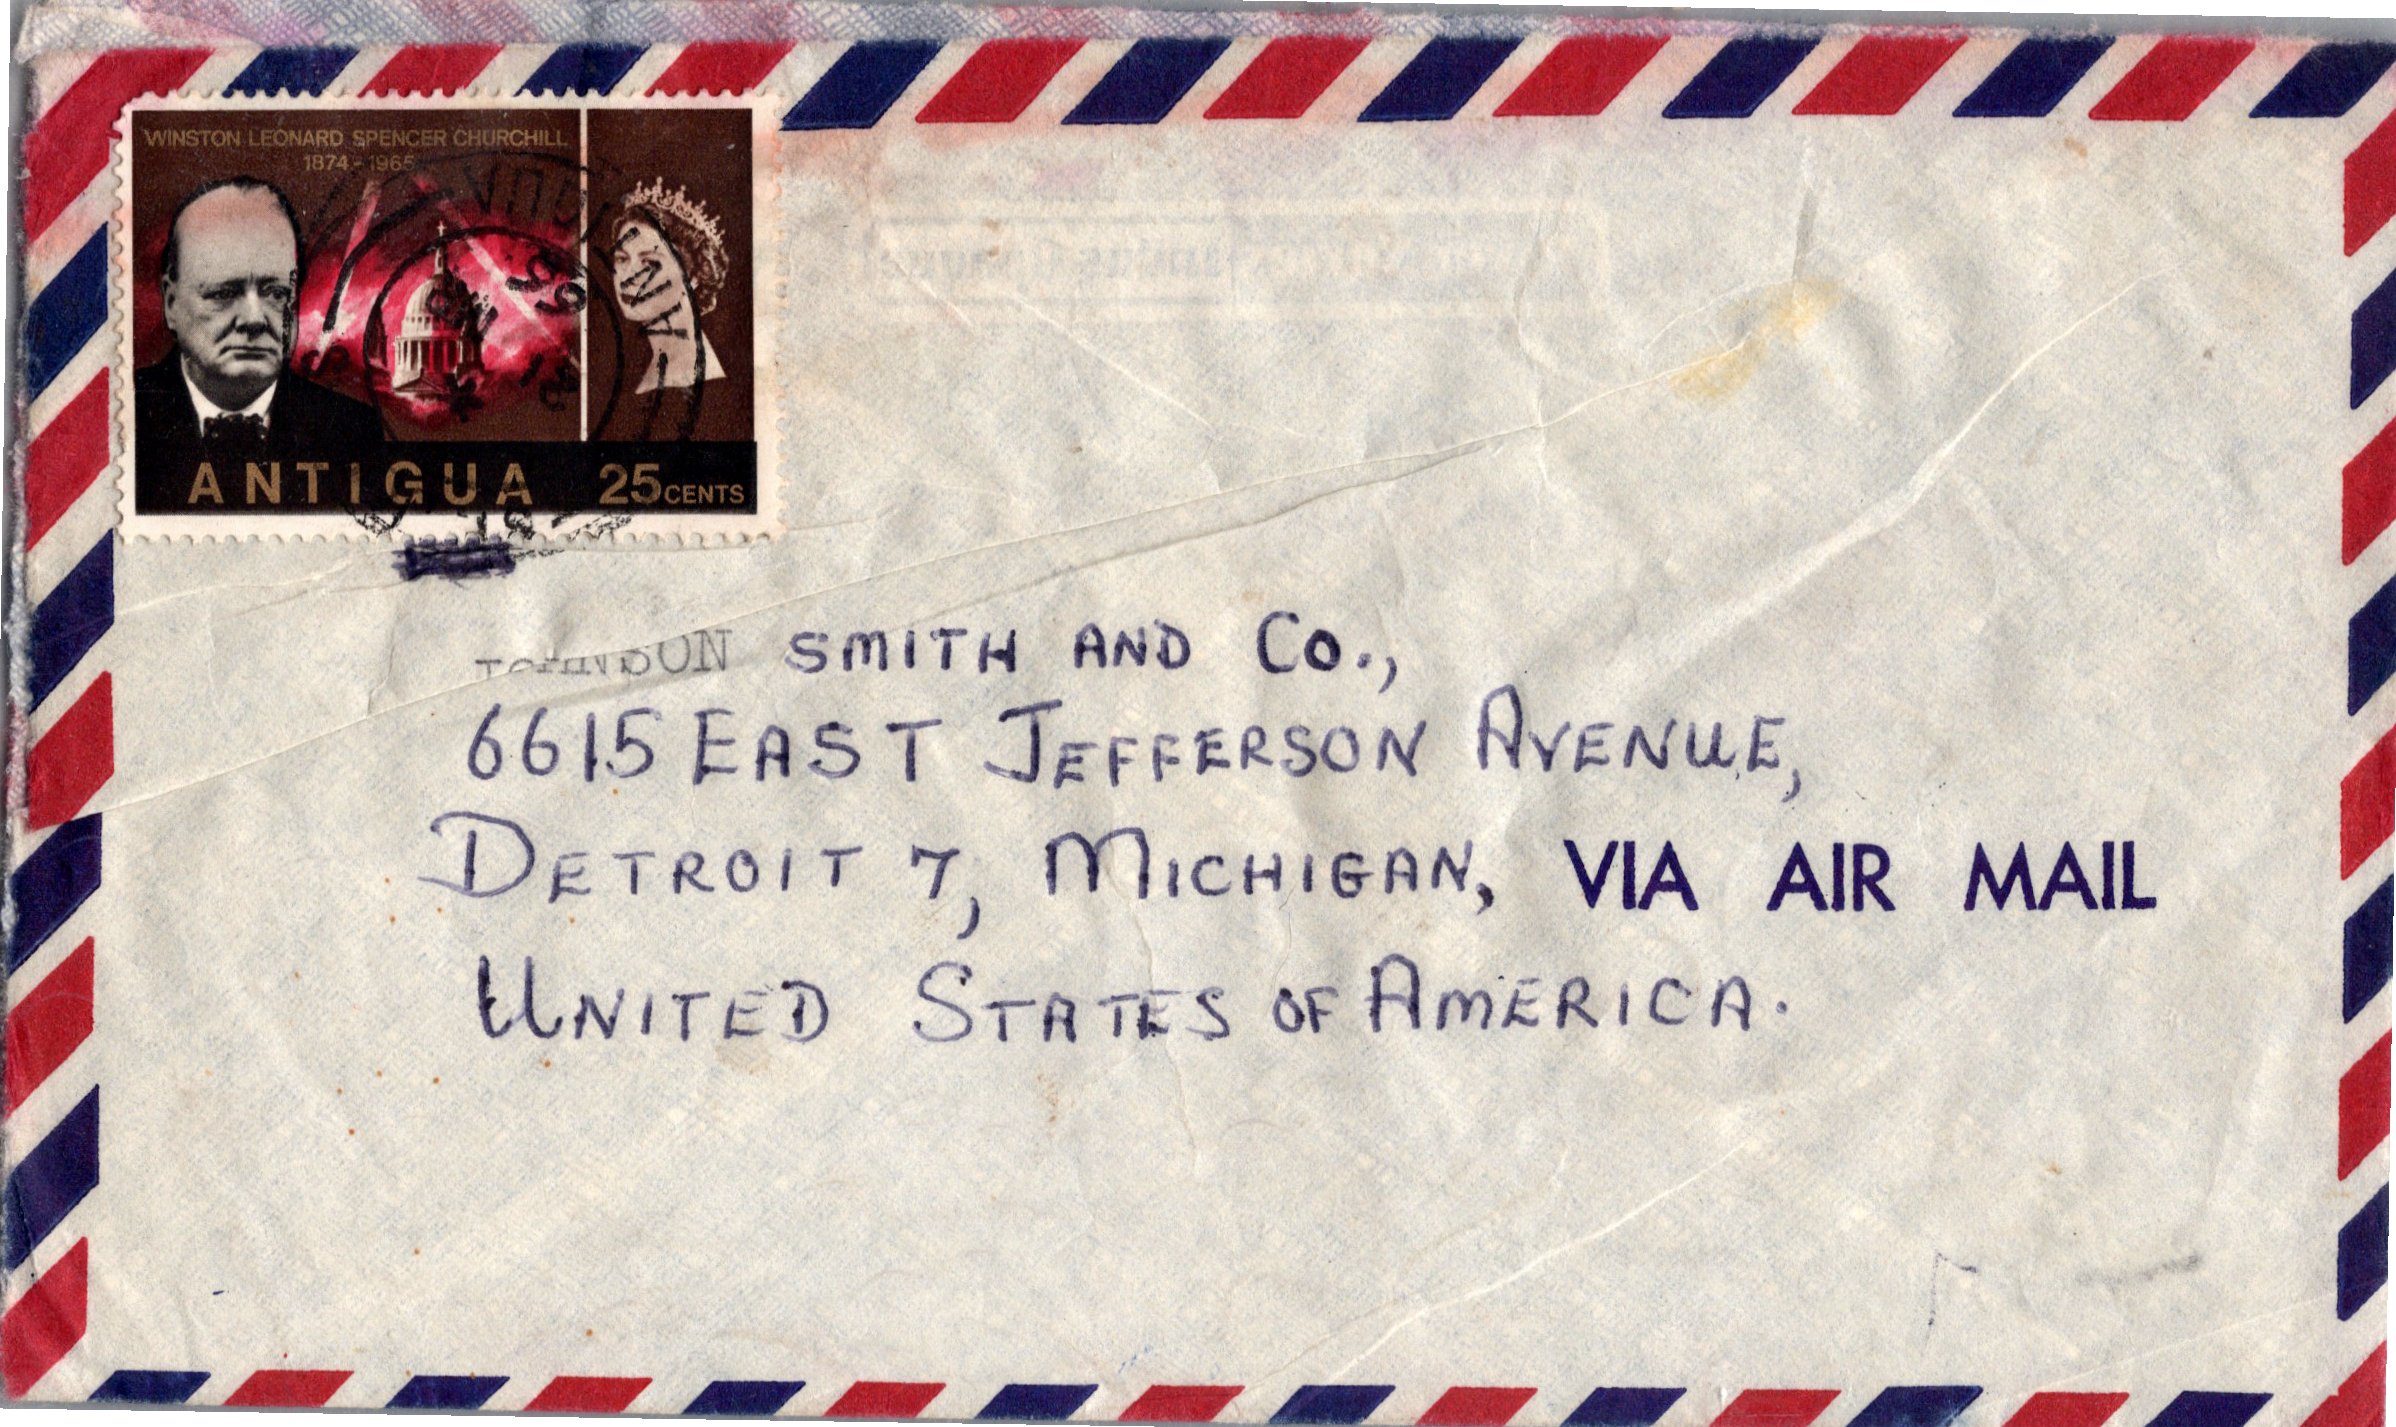 WINSTON LEONARD SPENCER CHURCHILL
1874-1965
ANTIGUA 25 CENTS
JOHNSON SMITH AND CO.,
6615 EAST JEFFERSON AVENUE,
DETROIT 7, MICHIGAN, VIA AIR MAIL
UNITED STATES OF AMERICA.